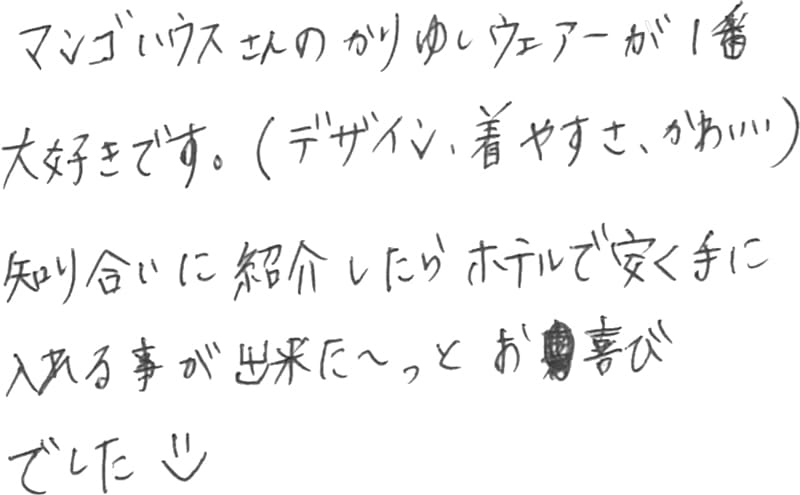 マンゴハウスさんのかりゆしウェアーが1番
大好きです。(デザイン、着やすさ、かわいい)
知り合いに紹介したらホテルで安く手に
入れる事が出来た〜っとお喜び
でした